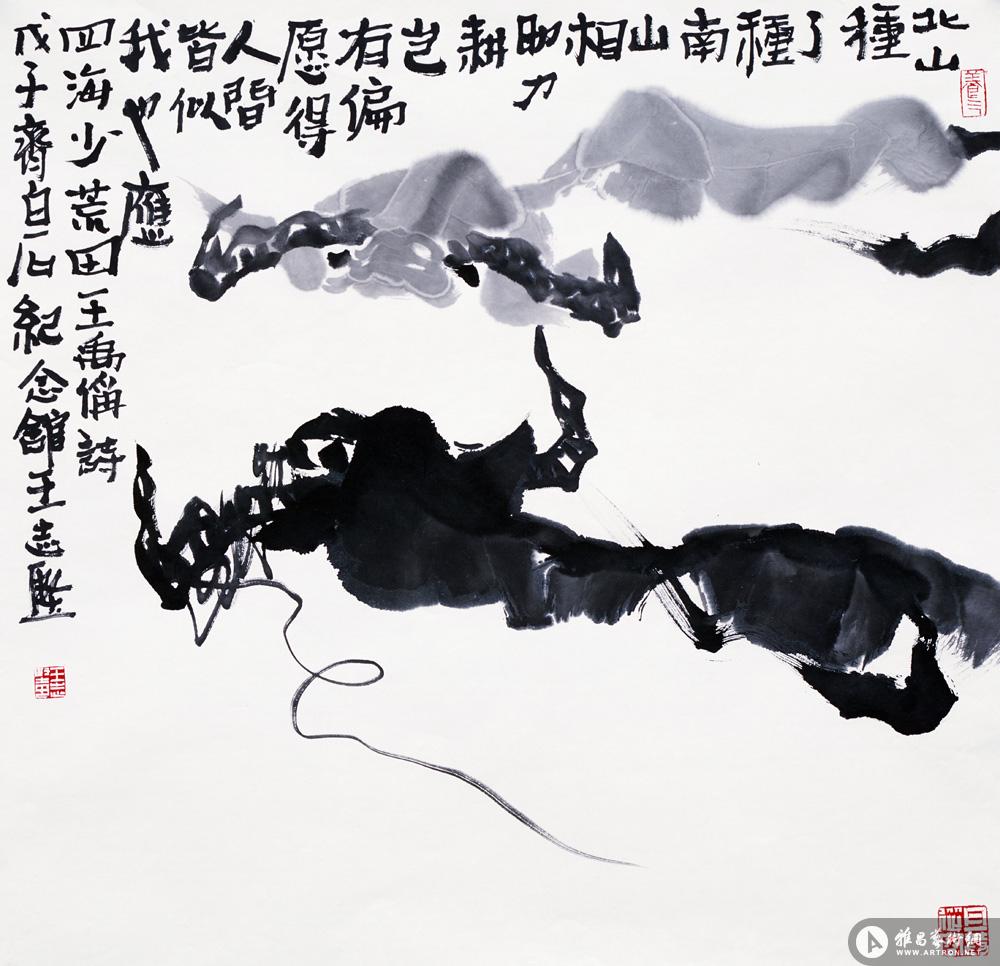 北山
種
了
種
南
山
相
助力
耕
岂
有偏
愿得
人間
皆似
我也應
四海少荒田王禹偁詩
戊子齊白石紀念館王志堅
雅昌藝術網
WWW.ARTRON.NET